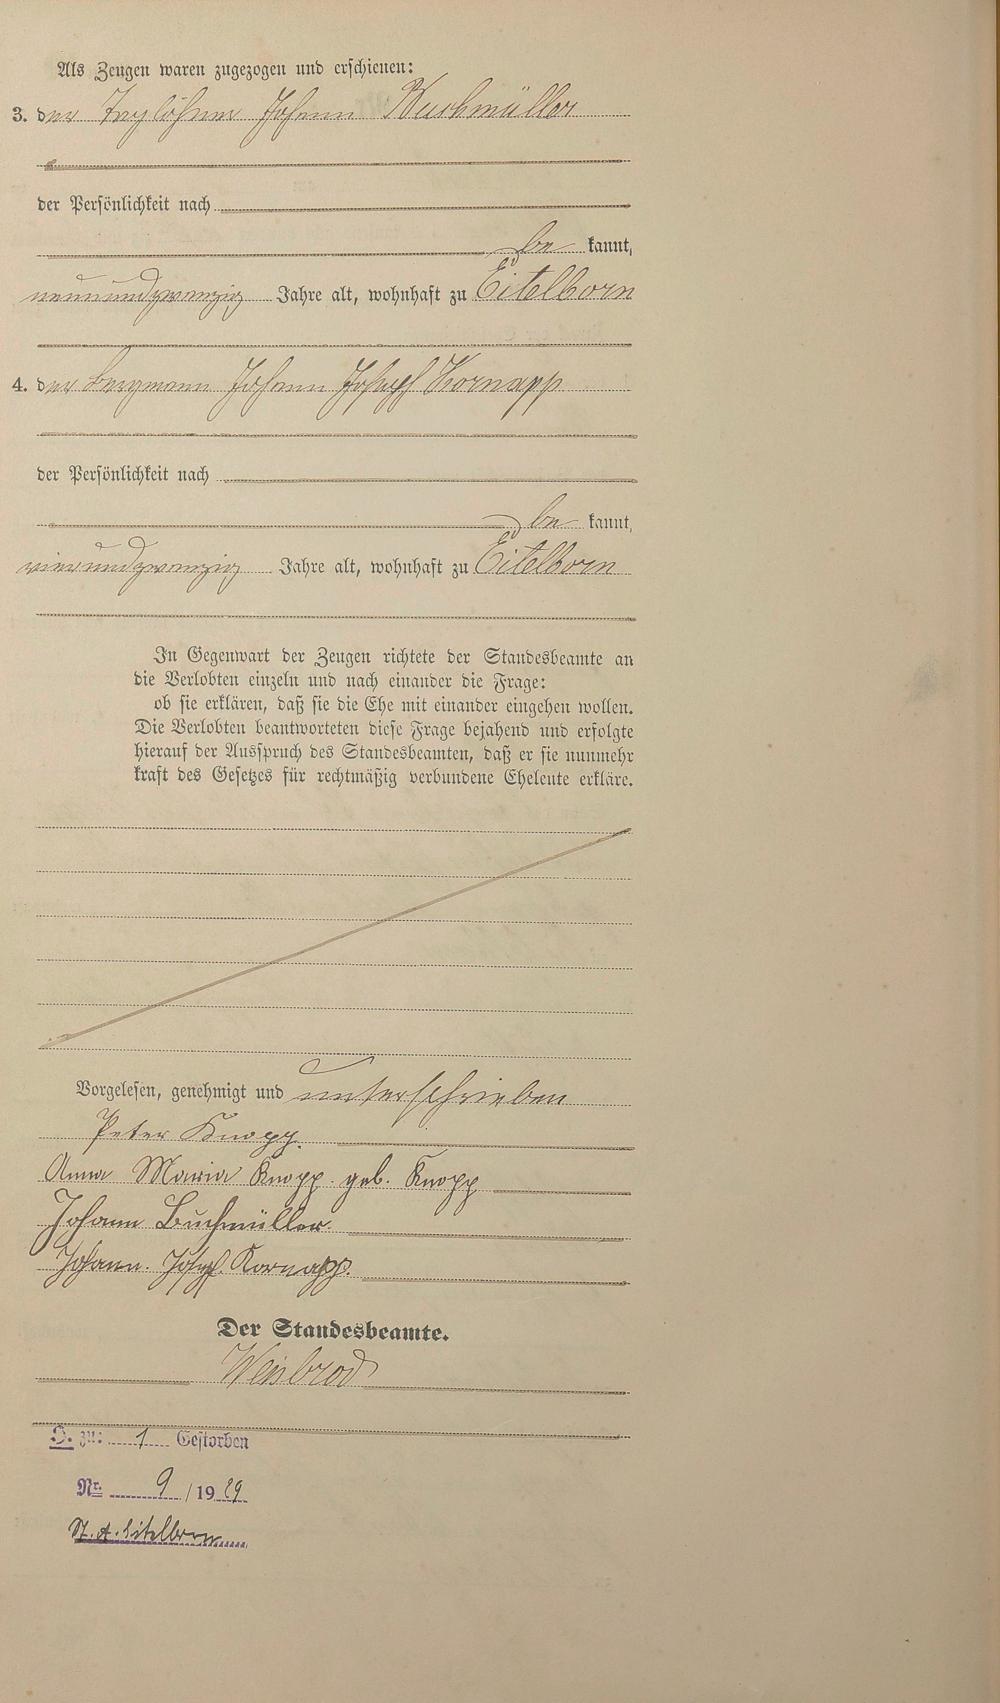 Als Zeugen waren zugezogen und erschienen:
3. der Taglöhner Johann Buchmüller
der Persönlichkeit nach
be kannt,
neunundzwanzig Jahre alt, wohnhaft zu Eitelborn
4. der Bergmann Johann Joseph Kornapp
der Persönlichkeit nach
be kannt,
vierundzwanzig Jahre alt, wohnhaft zu Eitelborn
In Gegenwart der Zeugen richtete der Standesbeamte an
die Verlobten einzeln und nach einander die Frage:
ob sie erklären, daß sie die Ehe mit einander eingehen wollen.
Die Verlobten beantworteten diese Frage bejahend und erfolgte
hierauf der Ausspruch des Standesbeamten, daß er sie nunmehr
kraft des Gesetzes für rechtmäßig verbundene Eheleute erkläre.
Vorgelesen, genehmigt und unterschrieben
Peter Knopp.
Anna Maria Knopp geb. Knopp
Johann Buchmüller.
Johann. Joseph. Kornapp.
Der Standesbeamte.
Weisbrod
zu: 1 Gestorben
Nr. 9 / 19 29
St. A. Eitelborn